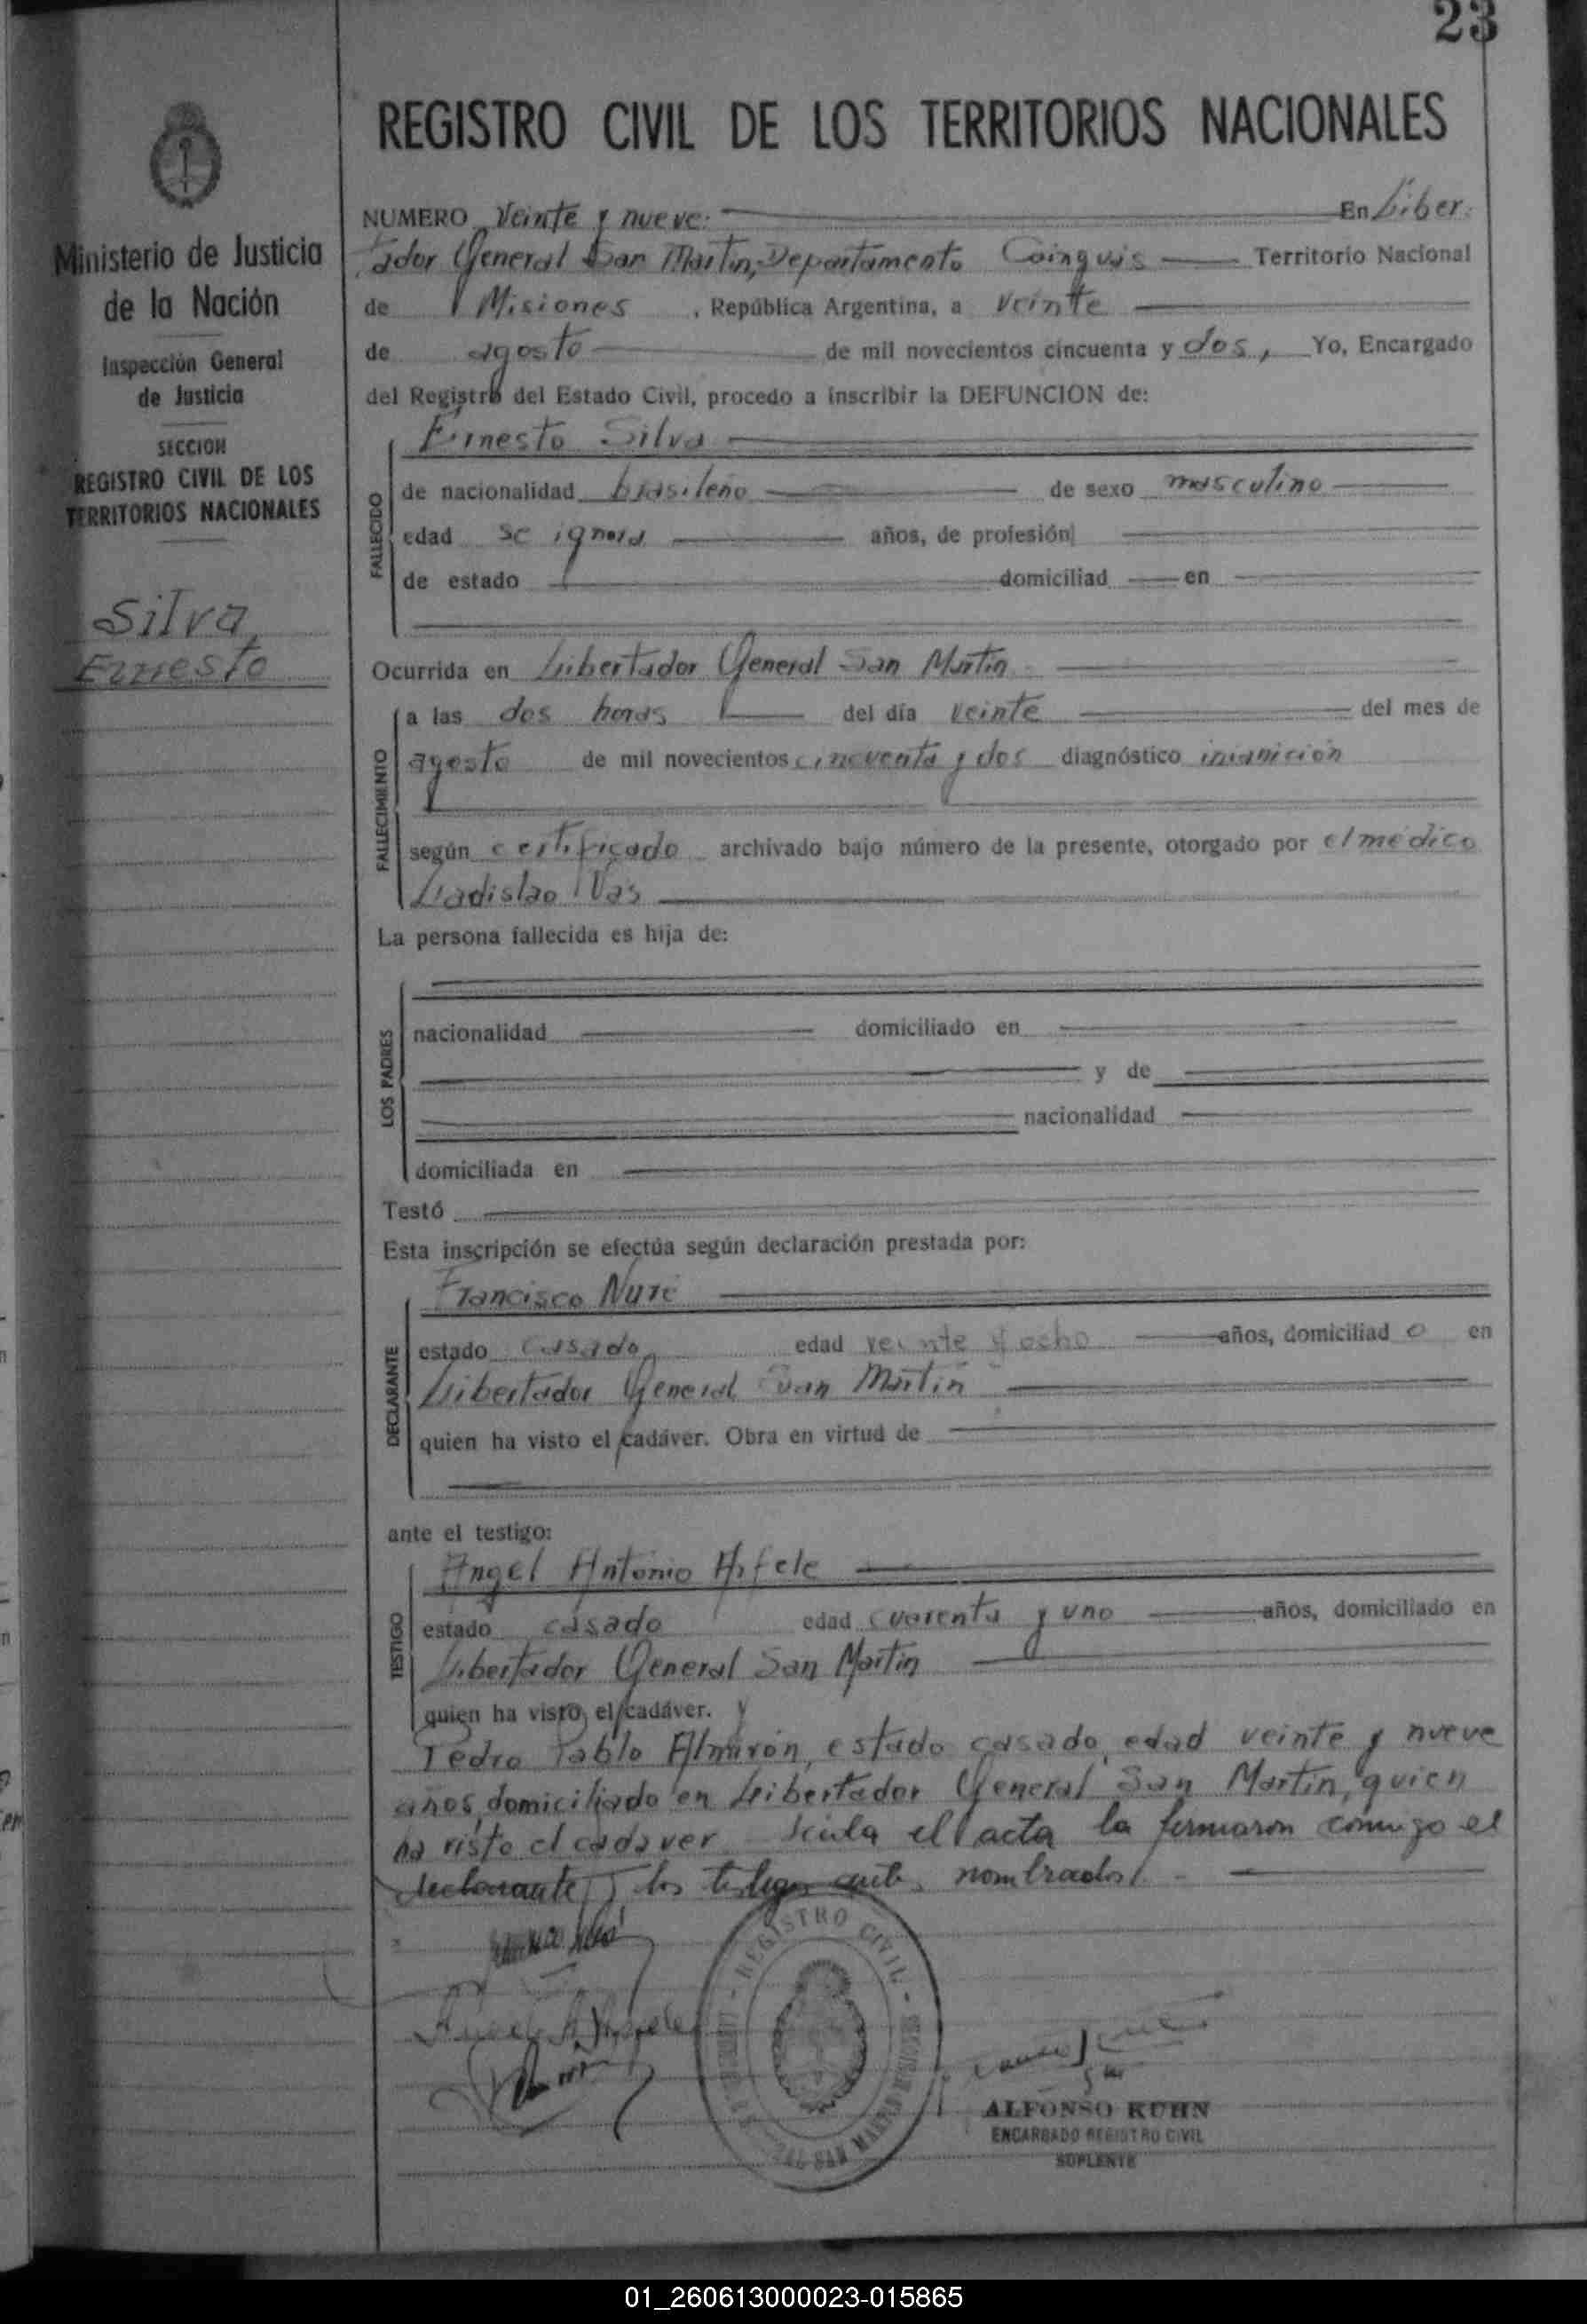 23
REGISTRO CIVIL DE LOS TERRITORIOS NACIONALES
Ministerio de Justicia
de la Nación
Inspección General
de Justicia
SECCION
REGISTRO CIVIL DE LOS
TERRITORIOS NACIONALES
Silva,
Ernesto
NUMERO Veinte y nueve. En Liber
tador General San Martin, Departamento Cainguás Territorio Nacional
de Misiones, República Argentina, a veinte
de agosto de mil novecientos cincuenta y dos, Yo, Encargado
del Registro del Estado Civil, procedo a inscribir la DEFUNCION de:
Ernesto Silva
FALLECIDO
de nacionalidad brasileño de sexo masculino
edad se ignora años, de profesión
de estado domiciliad en
Ocurrida en Libertador General San Martin
FALLECIMIENTO
a las dos horas del día veinte del mes de
agosto de mil novecientos cincuenta y dos diagnóstico inanición
según certificado archivado bajo número de la presente, otorgado por el médico
Ladislao
La persona fallecida es hija de:
LOS PADRES
nacionalidad domiciliado en
y de
nacionalidad
domiciliada en
Testó
Esta inscripción se efectúa según declaración prestada por:
Francisco
DECLARANTE
estado casado edad veinte y ocho años, domiciliad o en
Libertador General San Martin
quien ha visto el cadáver. Obra en virtud de
ante el testigo:
Angel Antonio
TESTIGO
estado casado edad cuarenta y uno años, domiciliado en
Libertador General San Martin
quien ha visto el cadáver. y
Pedro Pablo Almirón, estado casado, edad veinte y nueve
años, domiciliado en Libertador General San Martin, quien
ha visto el cadaver. Leida el acta la firmaron conmigo el
declarante y los testigos ante nombrados.
REGISTRO CIVIL
ALFONSO KUHN
ENCARGADO REGISTRO CIVIL
SUPLENTE
01_260613000023-015865